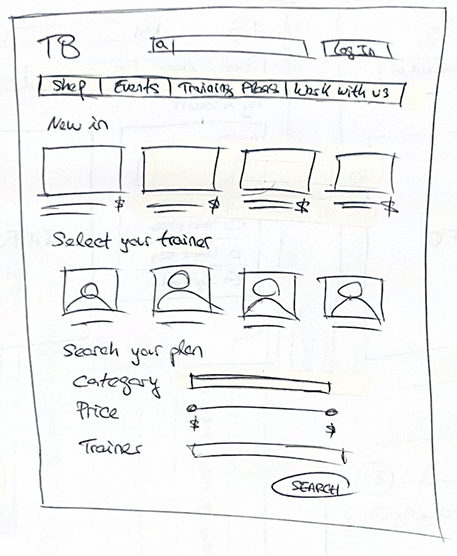 TB Log In
Shop Events Training Plans Work with us
New in
$ $ $ $
Select your trainer
Search your plan
Category
Price
$ $
Trainer
SEARCH